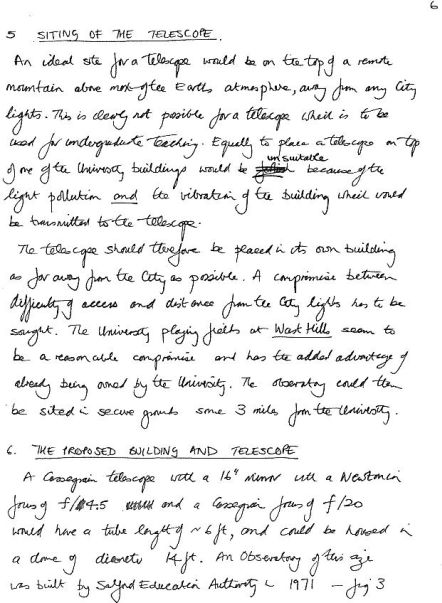 6
5 SITING OF THE TELESCOPE.
An ideal site for a telescope would be on the top of a remote
mountain above most of the Earths atmosphere, away from any City
lights. This is clearly not possible for a telescope which is to be
used for undergraduate teaching. Equally to place a telescope on top
of one of the University buildings would be unsuitable because of the
light pollution and the vibration of the building which would
be transmitted to the telescope.
The telescope should therefore be placed in its own building
as far away from the City as possible. A compromise between
difficulty of access and distance from the City lights has to be
sought. The University playing fields at West Hills seem to
be a reasonable compromise and has the added advantage of
already being owned by the University. The observatory could then
be sited in secure grounds some 3 miles from the University.
6. THE PROPOSED BUILDING AND TELESCOPE
A Cassegrain telescope with a 16" mirror with a Newtonian
focus of f/4.5 and a Cassegrain focus of f/20
would have a tube length of ~ 6 ft, and could be housed in
a dome of diameter 14 ft. An Observatory of this size
was built by Salford Education Authority in 1971 — fig 3